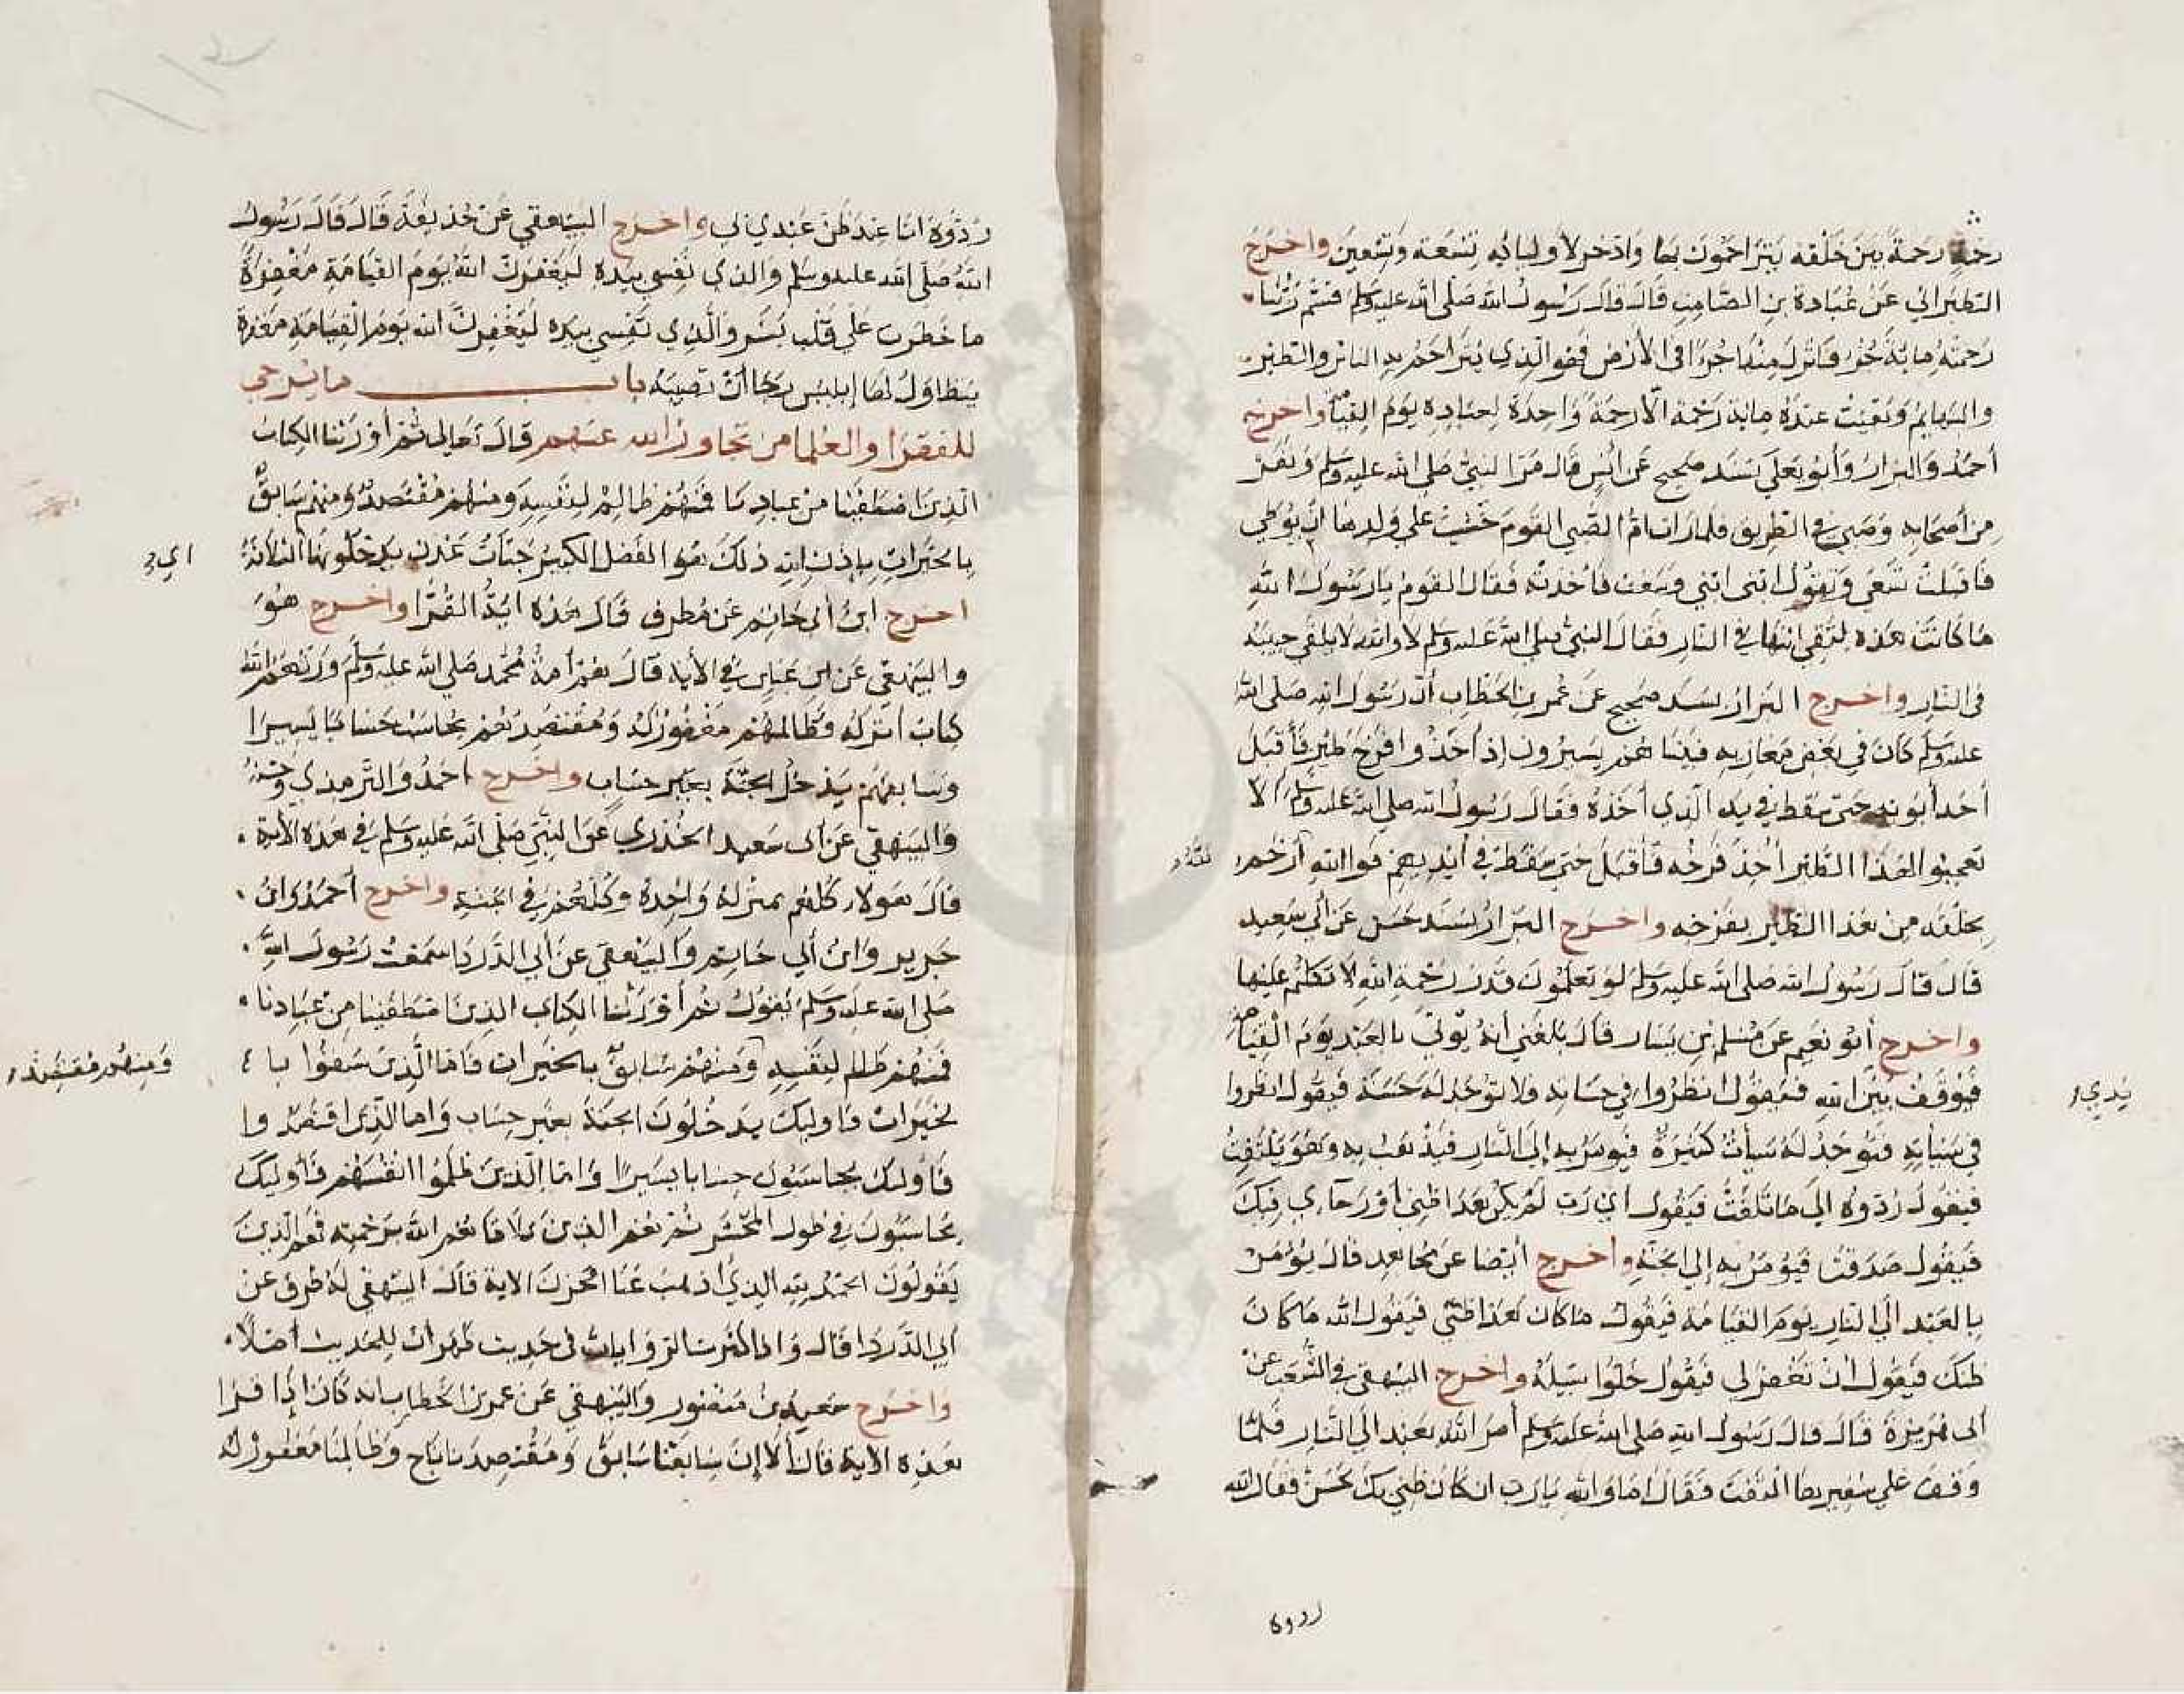 رحمة رحمة بين خلقه يتراحمون بها وادخر لاوليائه تسعة وتسعين واخرج
الطبراني عن عبادة بن الصامت قال قال رسول الله صلى الله عليه وسلم قسم ربنا
رحمته مائة جزء فانزل منها جزا في الارض فهو الذي يتراحم به الناس والطير
والبهايم وبقيت عنده ماية رحمة الا رحمة واحدة لعباده يوم القيمة واخرج
أحمد والبزار وأبو يعلي بسند صحيح عن أنس قال مر النبي صلى الله عليه وسلم ونفر
من أصحابه وصبي في الطريق فلما رات ام الصبي القوم خشيت علي ولدها ان يوطي
فاقبلت تسعي وتقول ابني ابني وسعت فاخذته فقال القوم يا رسول الله
ما كانت هذه لتلقي ابنها في النار فقال النبي صلى الله عليه وسلم لا والله لا يلقي حبيبه
في النار واخرج البزار بسند صحيح عن عمر بن الخطاب أن رسول الله صلى الله
عليه وسلم كان في بعض مغازيه فبينا هم يسيرون إذ أخذوا فرخ طير فأقبل
أحد أبويه حتى سقط في يد الذي أخذه فقال رسول الله صلى الله عليه وسلم ألا
تعجبوا لهذا الطير أخذ فرخه فأقبل حتى سقط في أيديهم فوالله أرحم
لله
بخلقه من هذا الطير بفرخه واخرج البزار بسند حسن عن أبي سعيد
قال قال رسول الله صلى الله عليه وسلم لو تعلمون قدر رحمة الله لاتكلتم عليها
واخرج أبو نعيم عن مسلم بن يسار قال بلغني أنه يؤتي بالعبد يوم القيامة
فيوقف بين الله فيقول انظروا في حسناته فلا توجد له حسنة فيقول انظروا
يدي
في سيأته فتوجد له سيأت كثيرة فيومر به إلى النار فيذهب به وهو يلتفت
فيقول ردوه الي ما تلتفت فيقول أي رب لم يكن هذا ظني أو رجاءي فيك
فيقول صدقت فيؤمر به إلي الجنة واخرج أيضا عن مجاهد قال يؤمر
بالعبد الي النار يوم القيامة فيقول ما كان هذا ظني فيقول الله ما كان
ظنك فيقول ان تغفر لي فيقول خلوا سبيله واخرج البيهقي في الشعب عن
أبي هريرة قال قال رسول الله صلى الله عليه وسلم أمر الله بعبد الي النار فلما
وقف علي شفيرها التفت فقال اما والله يا رب ان كان ظني بك لحسن فقال الله
ردوه
ردوه انا عند ظن عبدي لي واخرج البيهقي عن حذيفة قال قال رسول
الله صلى الله عليه وسلم والذي نفسي بيده ليغفرن الله يوم القيامة مغفرة
ما خطرت علي قلب بشر والذي نفسي بيده ليغفرن الله يوم القيامة مغفرة
يتطاول لها إبليس رجا ان تصيبه باب ما يرجي
للفقرا والعلما من تجاوز الله عنهم قال تعالي ثم أورثنا الكتاب
الذين اصطفينا من عبادنا فمنهم ظالم لنفسه ومنهم مقتصد ومنهم سابق
بالخيرات بإذن الله ذلك هو الفضل الكبير جنات عدن يدخلونها الثلاثة
اي
اخرج ابن أبي حاتم عن مطرف قال هذه اية القرا واخرج هو
والبيهقي عن ابن عباس في الأية قال هم أمة محمد صلى الله عليه وسلم ورثهم الله
كتاب انزله فظالمهم مغفور له ومقتصدهم يحاسب حسابا يسيرا
وسابقهم يدخل الجنة بغير حساب واخرج احمد والترمذي وحسنه
والبيهقي عن أبي سعيد الخدري عن النبي صلى الله عليه وسلم في هذه الأية
قال هولاء كلهم بمنزلة واحدة وكلهم في الجنة واخرج أحمد وابن
جرير وابن أبي حاتم والبيهقي عن أبي الدردا سمعت رسول الله
صلى الله عليه وسلم يقول ثم أورثنا الكتاب الذين اصطفينا من عبادنا
فمنهم ظالم لنفسه ومنهم سابق بالخيرات فاما الذين سبقوا با
ومنهم مقتصد
لخيرات فاوليك يدخلون الجنة بغير حساب واما الذين اقتصدوا
فأوليك يحاسبون حسابا يسيرا واما الذين ظلموا انفسهم فأوليك
يحاسبون في طول المحشر ثم هم الذين تلافاهم الله برحمته فهم الذين
يقولون الحمد لله الذي اذهب عنا الحزن الاية قال البيهقي له طرق عن
أبي الدردا قال واذا كثرت الروايات في حديث ظهر ان للحديث أصلا
واخرج سعيد بن منصور والبيهقي عن عمر بن الخطاب انه كان إذا قرا
هذه الاية قال ألا إن سابقنا سابق ومقتصدنا ناج وظالمنا مغفور له